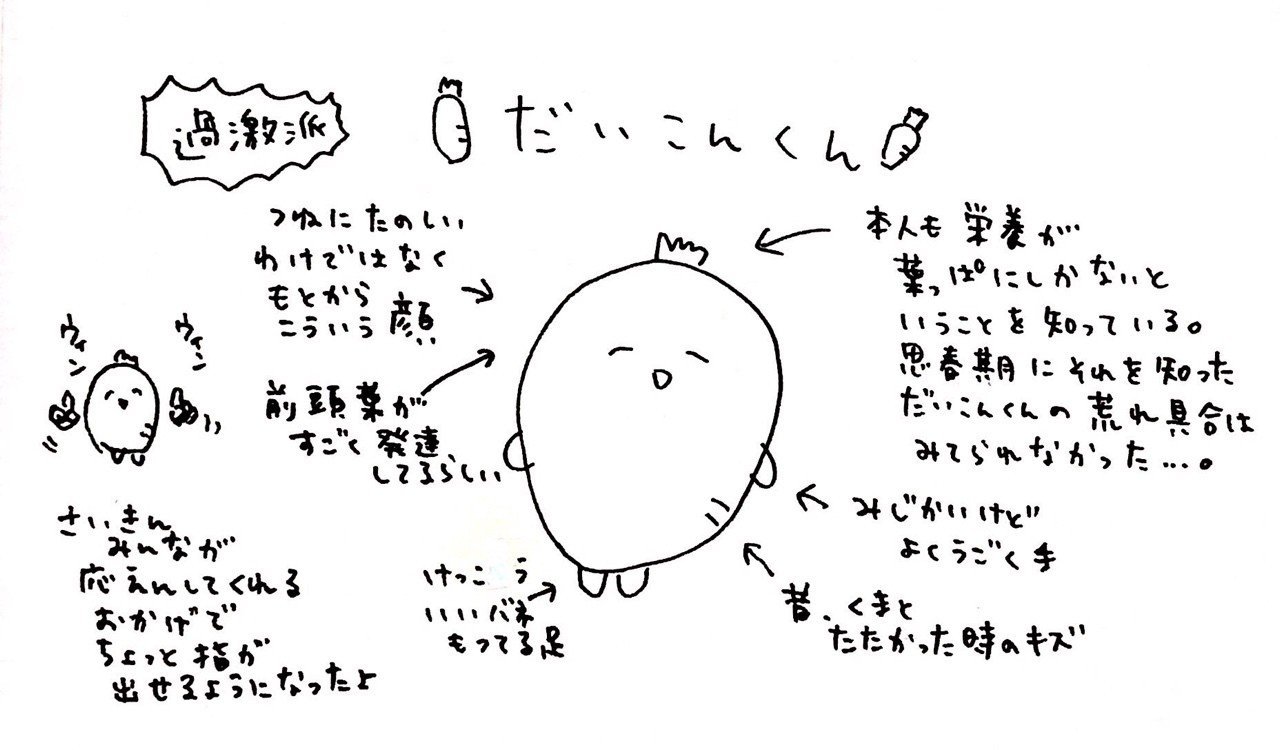 過激派
だいこんくん
つねにたのしい
わけではなく
もとから
こういう顔
前頭葉が
すごく発達
してるらしい
本人も栄養が
葉っぱにしかないと
いうことを知っている。
思春期にそれを知った
だいこんくんの荒れ具合は
みてられなかった…。
みじかいけど
よくうごく手
昔、くまと
たたかった時のキズ
けっこう
いいバネ
もってる足
ウィン
ウィン
さいきん
みんなが
応えんしてくれる
おかげで
ちょっと指が
出せるようになったよ